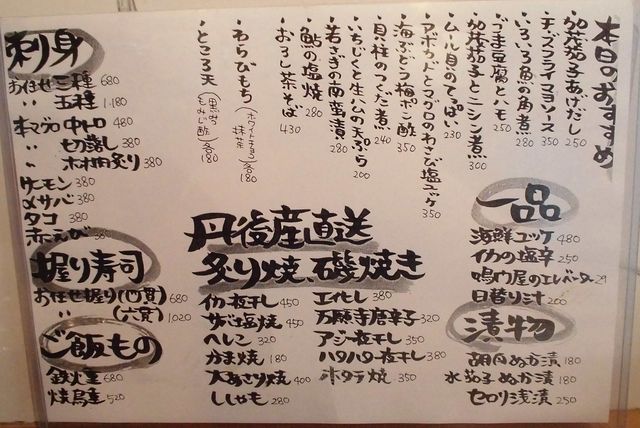 本日のおすすめ
加茂茄子あげだし 250
チーズフライマヨソース 350
いろいろ魚の角煮 280
づま豆腐とハモ 250
加茂茄子とニシン煮 300
ムール貝のてっぱい 230
アボカドとマグロのわさび塩ユッケ 350
海ぶどう梅ポン酢 350
貝柱のつくだ煮 240
いちじくと生ハムの天ぷら 200
若さぎの南蛮漬 280
鮎の塩焼 280
おろし茶そば 430
わらびもち (ホワイトチョコ 抹茶) 各180
ところ天 (黒みつ もみじ酢) 各180
刺り身
お任せ三種 680
〃 五種 1.180
本マグロ中トロ 480
〃 切落し 380
〃 ホホ肉炙り 380
サーモン 380
〆サバ 380
タコ 380
赤えび 380
握り寿司
お任せ握り(四貫) 680
〃 (六貫) 1,020
ご飯もの
鉄火重 680
焼鳥重 520
丹後産直送
炙り焼、磯焼き
イカ一夜干し 450
サバ塩焼 450
へレンコ 320
かま焼 180
大あさり焼 400
ししゃも 280
エイヒレ 380
万願寺唐辛子 320
アジ一夜干し 350
ハタハタ一夜干し 380
ホタテ焼 350
一品
海鮮ユッケ 480
イカの塩辛 250
鳴門屋のエレベーター 29
日替り汁 200
漬物
胡瓜ぬか漬 180
水茄子ぬか漬 180
セロリ浅漬 250